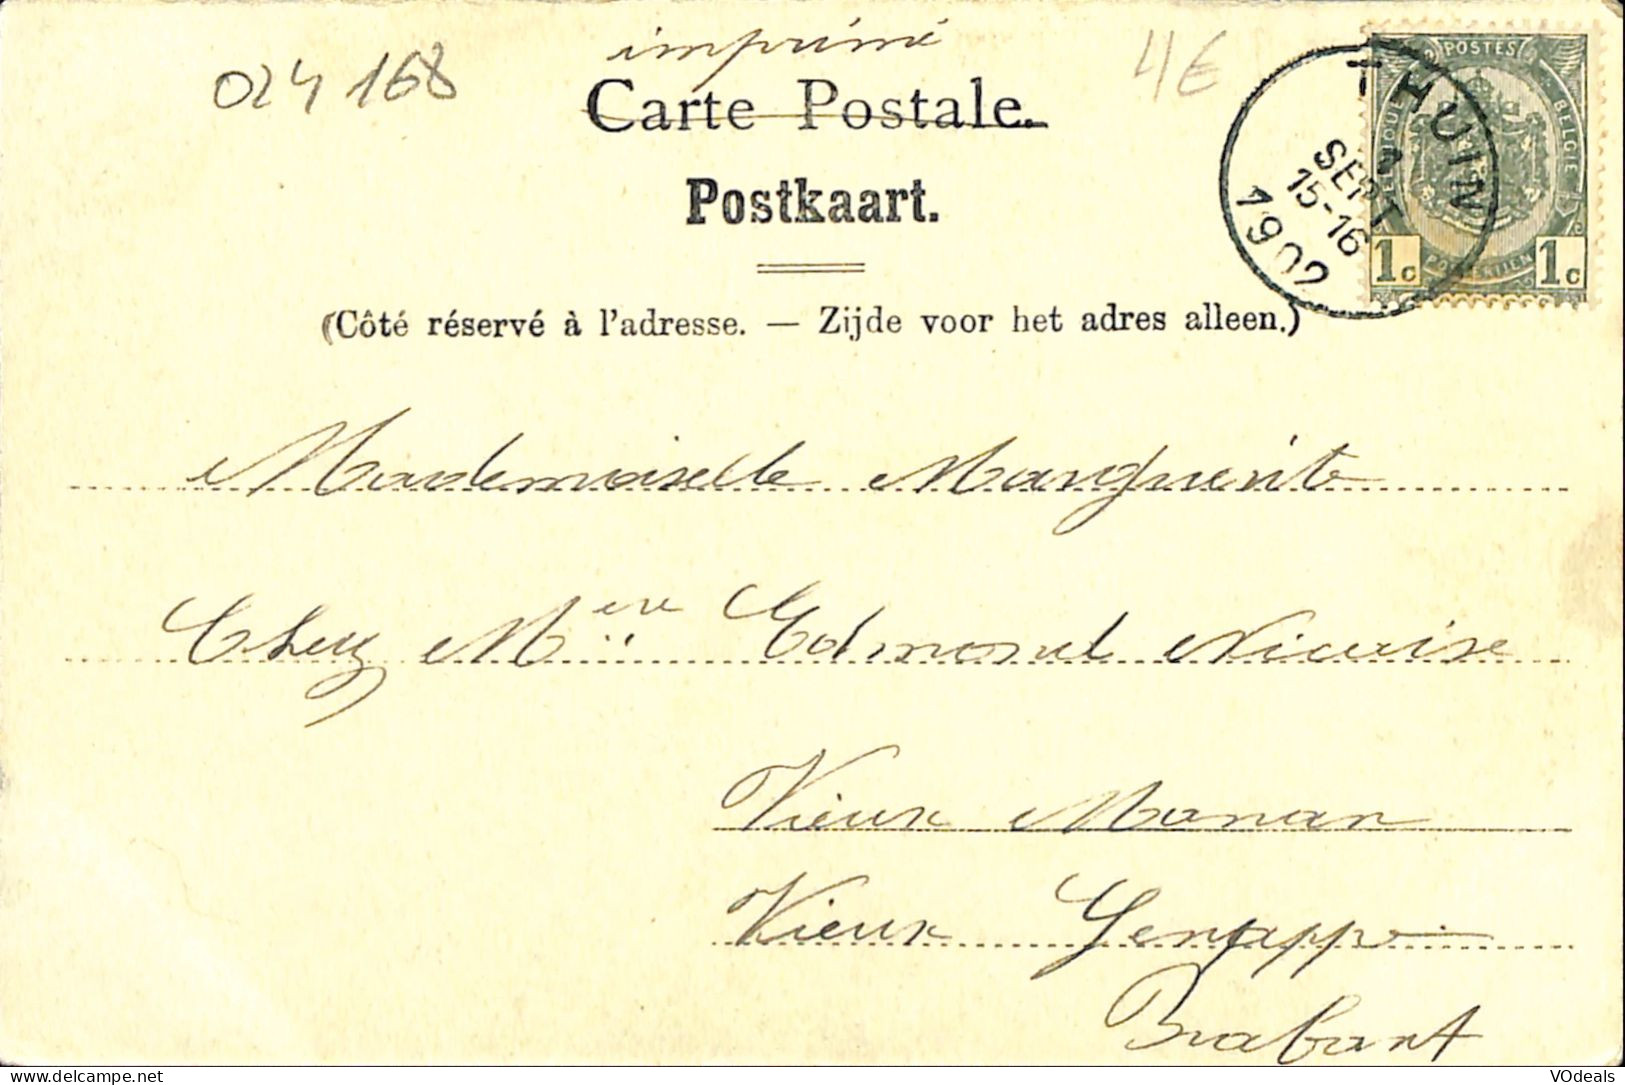 imprimé
024168
4€
Carte Postale.
Postkaart.
(Côté réservé à l'adresse. — Zijde voor het adres alleen.)
POSTES
BELGIE
1c 1c
THUIN
SEPT
15-16
1902
Mademoiselle Marguerite
Chez Mère Edmond Nicaise
Vieux Manan
Vieux Genappe
Brabant
VOdeals